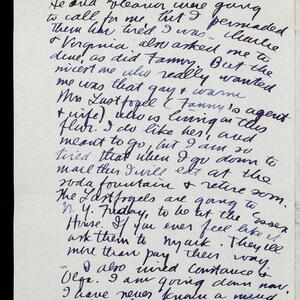 He and Eleanor were going
to call for me, but I persuaded
them how tired I was. Charlie
& Virginia also asked me to
dine, as did Fanny. But the
nicest one who really wanted
me was that gay & warm
Mrs Lastfogel (Fanny's agent
& wife), who is living on this
floor. I do like her, and
meant to go, but I am so
tired that when I go down to
mail this I will eat at the
soda fountain & retire soon.
The Lastfogels are going to
N.Y. Friday, to be at the Essex
House. If you ever feel like it
ask them to Nyack. They'll
more than pay their way.
I also wired Constance &
Olga. I am going down now.
I have never known a mind